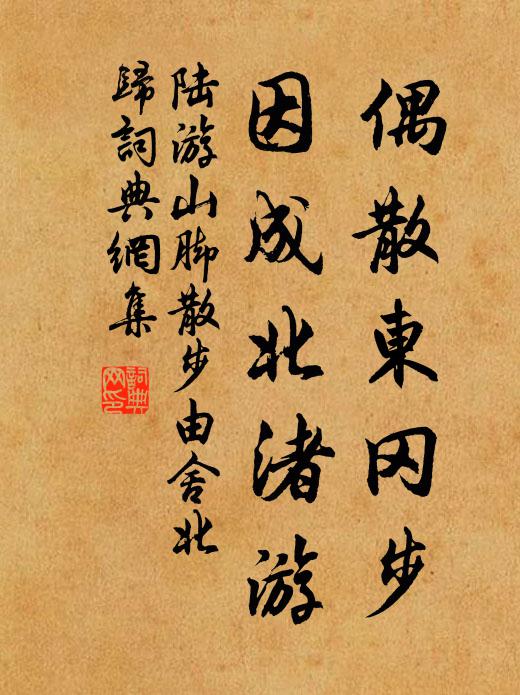 偶散東冈步
因成北渚游
陆游山脚散步由舍北
歸詞典網集
詞典
网印